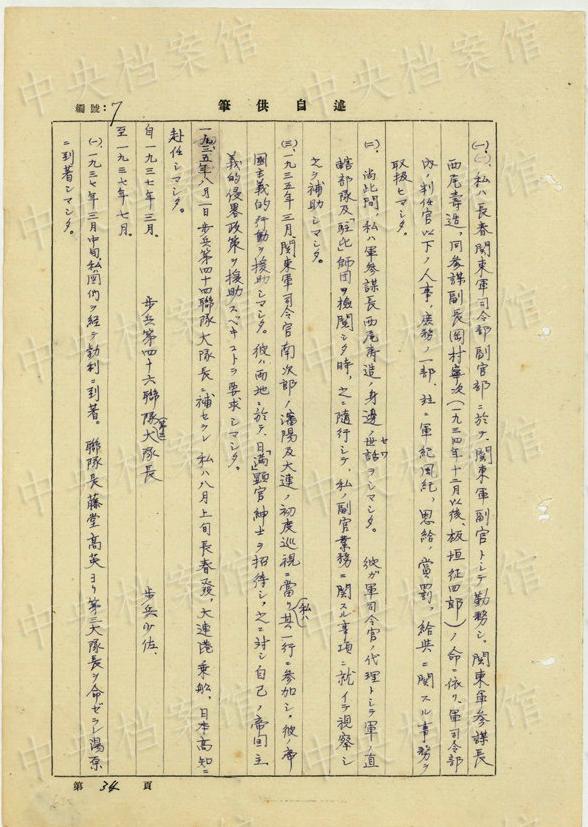 述自供筆
編號：7
(一)、私ハ長春関東軍司令部副官部ニ於テ、関東軍副官トシテ勤務シ、関東軍参謀長
西尾壽造、同参謀副長岡村寧次(一九三四年十二月以後、板垣征四郎)ノ命ニ依リ、軍司令部
内ノ判任官以下ノ人事、庶務ノ一部、並ニ軍紀風紀、恩給、賞罰、給与ニ関スル事務ヲ
取扱ヒマシタ。
(二)、尚此間、私ハ軍参謀長西尾壽造ノ身邊ノ世話ヲシマシタ。彼ガ軍司令官ノ代理トシテ軍ノ直
轄部隊及「駐此」師団ヲ検閲シタ時、之ニ随行シテ、私ノ副官業務ニ関スル事項ニ就イテ視察シ
之ヲ補助シマシタ。
(三)、一九三五年三月、関東軍司令官南次郎ノ瀋陽及大連ノ初度巡視ニ當リ私ハ其一行ニ参加シ、彼ノ帝
國主義的行動ヲ援助シマシタ。彼ハ両地ニ於テ、日「満」顕官紳士ヲ招待シ、之ニ対シ自己ノ帝国主
義的侵畧政策ヲ援助スベキコトヲ要求シマシタ。
一九三五年八月一日歩兵第四十四聯隊大隊長ニ補セラレ私ハ八月上旬長春発、大連港乗船、日本高知ニ
赴任シマシタ。
自一九三七年三月、
至一九三七年七月。
歩兵第四十六聯隊第三大隊長 歩兵少佐、
(一)、一九三七年三月中旬、私ハ図們ヲ経テ勃利ニ到着。聯隊長藤堂高英ヨリ第三大隊長ヲ命ゼラレ湯原
ニ到着シマシタ。
第 34 頁
中央档案馆